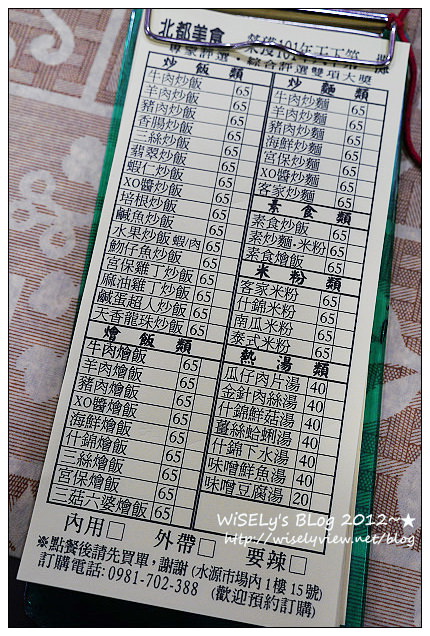 北都美食
專家評選‧綜合評選雙項大獎
炒飯類
牛肉炒飯 65
羊肉炒飯 65
豬肉炒飯 65
香腸炒飯 65
三絲炒飯 65
翡翠炒飯 65
蝦仁炒飯 65
XO醬炒飯 65
培根炒飯 65
鹹魚炒飯 65
水果炒飯 蝦/肉 65
魩仔魚炒飯 65
宮保雞丁炒飯 65
麻油雞丁炒飯 65
鹹蛋超人炒飯 65
天香龍珠炒飯 65
燴飯類
牛肉燴飯 65
羊肉燴飯 65
豬肉燴飯 65
XO醬燴飯 65
海鮮燴飯 65
什錦燴飯 65
三絲燴飯 65
宮保燴飯 65
三菇六婆燴飯 65
炒麵類
牛肉炒麵 65
羊肉炒麵 65
豬肉炒麵 65
海鮮炒麵 65
宮保炒麵 65
XO醬炒麵 65
客家炒麵 65
素食類
素食炒飯 65
素炒麵‧米粉 65
素食燴飯 65
米粉類
客家米粉 65
什錦米粉 65
南瓜米粉 65
泰式米粉 65
熱湯類
瓜仔肉片湯 40
金針肉絲湯 40
什錦鮮菇湯 40
薑絲蛤蜊湯 40
什錦下水湯 40
味噌鮮魚湯 40
味噌豆腐湯 20
內用□ 外帶□ 要辣□
※點餐後請先買單,謝謝 (水源市場內1樓15號)
訂購電話:0981-702-388 (歡迎預約訂購)
WiSELy's Blog 2012~★
http://wiselyview.net/blog